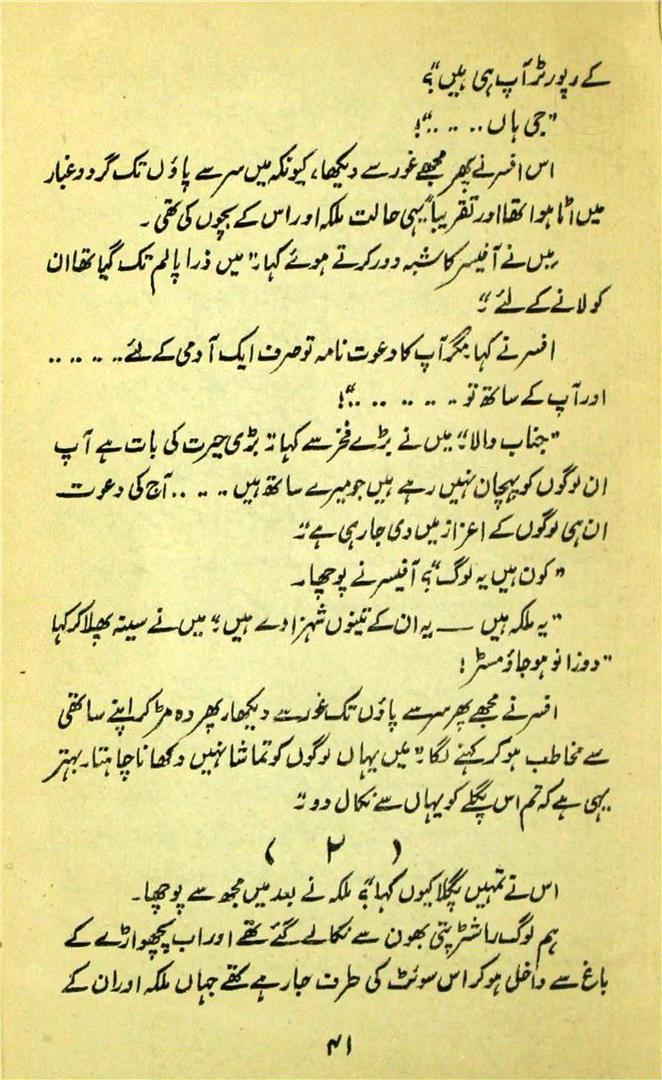 کے رپورٹر آپ ہی ہیں"؟
"جی ہاں.. .. .."!
اس افسر نے پھر مجھے غور سے دیکھا، کیونکہ میں سر سے پاؤں تک گرد و غبار
میں اٹا ہوا تھا اور تقریباً یہی حالت ملکہ اور اس کے بچوں کی تھی۔
میں نے آفیسر کا شبہ دور کرتے ہوئے کہا۔" میں ذرا پالم تک گیا تھا ان
کو لانے کے لئے"۔
افسر نے کہا مگر آپ کا دعوت نامہ تو صرف ایک آدمی کے لئے.. .. .. ..
اور آپ کے ساتھ تو .. .. .. .. .."!
"جناب والا"۔ میں نے بڑے فخر سے کہا" بڑی حیرت کی بات ہے آپ
ان لوگوں کو پہچان نہیں رہے ہیں جو میرے ساتھ ہیں.. .. .. آج کی دعوت
ان ہی لوگوں کے اعزاز میں دی جا رہی ہے"۔
"کون ہیں یہ لوگ"؟ آفیسر نے پوچھا۔
"یہ ملکہ ہیں ــــ یہ ان کے تینوں شہزادے ہیں"۔ میں نے سینہ پھلا کر کہا
"دو زانو ہو جاؤ مسٹر!
افسر نے مجھے پھر سر سے پاؤں تک غور سے دیکھا، پھر وہ مڑ کر اپنے ساتھی
سے مخاطب ہو کر کہنے لگا۔" میں یہاں لوگوں کو تماشا نہیں دکھانا چاہتا۔ بہتر
یہی ہے کہ تم اس پگلے کو یہاں سے نکال دو"۔
(۲)
اس نے تمہیں پگلا کیوں کہا"؟ ملکہ نے بعد میں مجھ سے پوچھا۔
ہم لوگ راشٹرپتی بھون سے نکالے گئے تھے اور اب پچھواڑے کے
باغ سے داخل ہو کر اس سوئٹ کی طرف جا رہے تھے جہاں ملکہ اور ان کے
۴۱